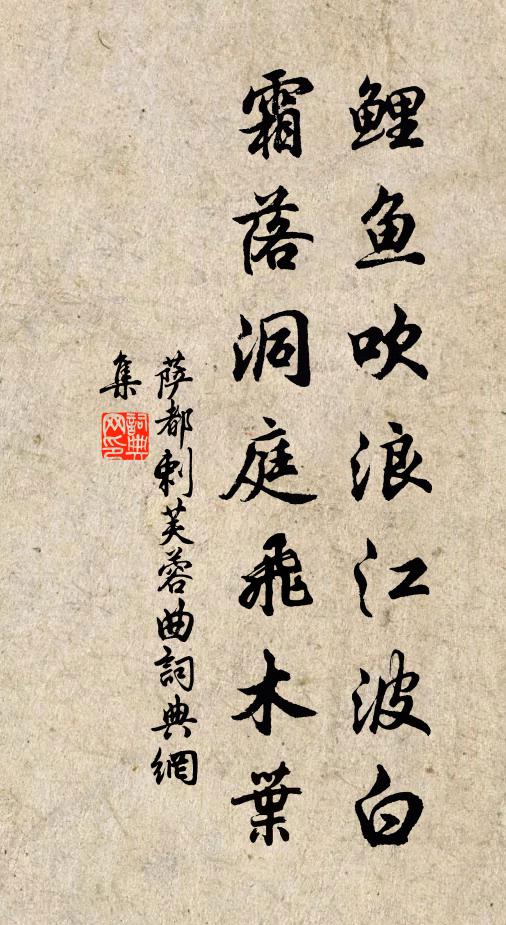 鲤鱼吹浪江波白
霜落洞庭飛木葉
萨都剌芙蓉曲詞典網
集
詞典
网印